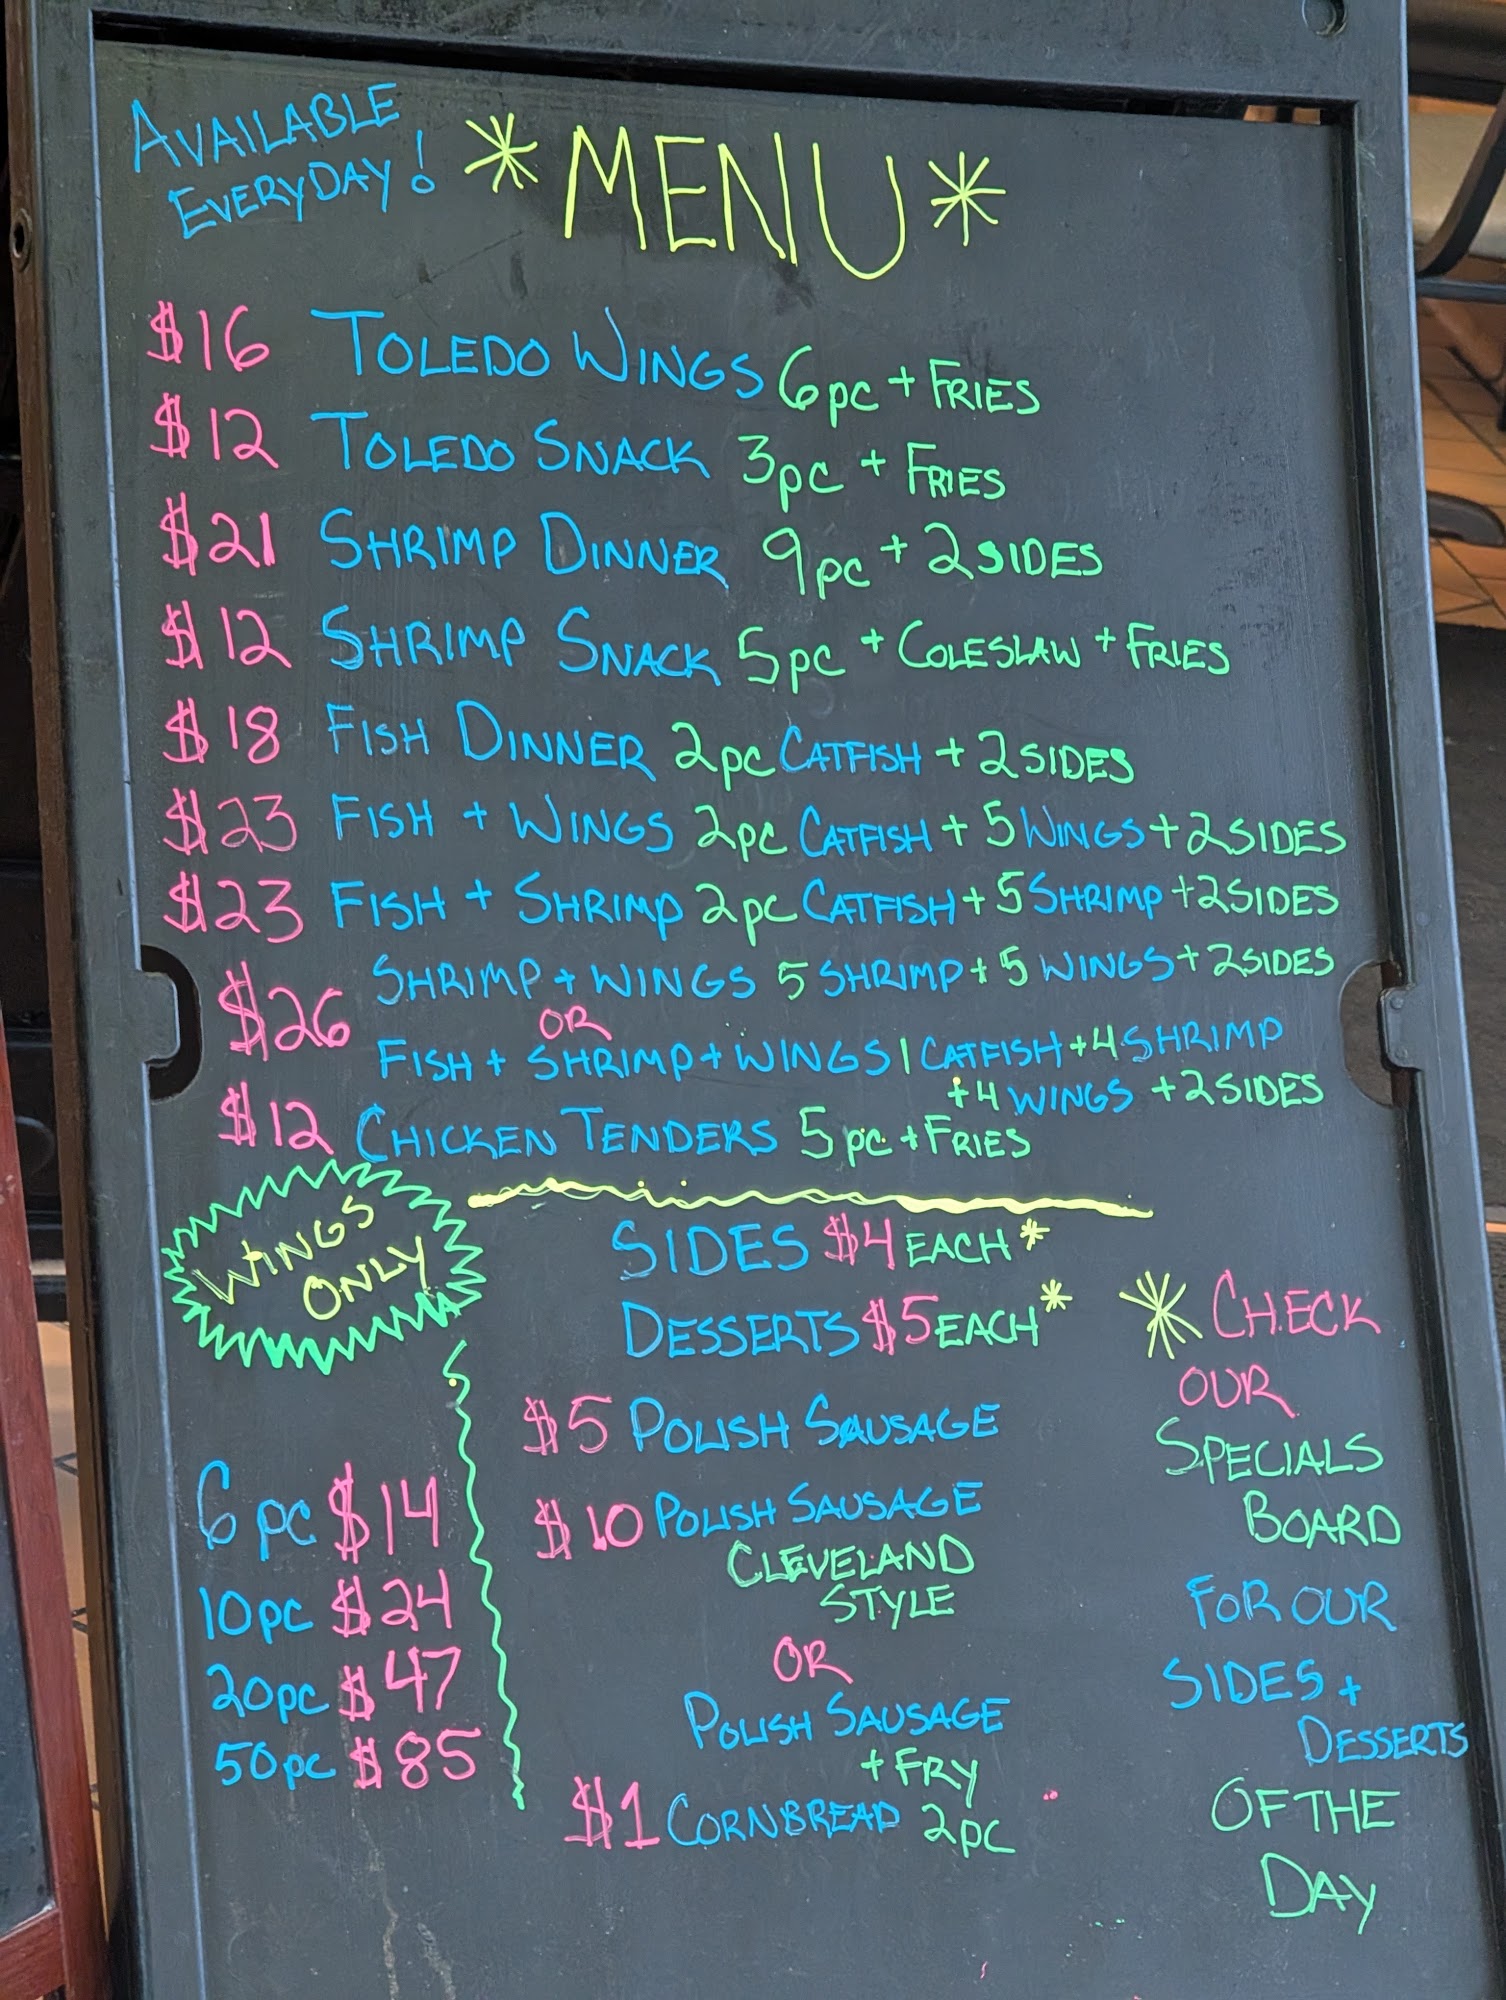 AVAILABLE
EVERYDAY!
*MENU*
$16 TOLEDO WINGS 6pc + FRIES
$12 TOLEDO SNACK 3pc + FRIES
$21 SHRIMP DINNER 9pc + 2 SIDES
$12 SHRIMP SNACK 5pc + COLESLAW + FRIES
$18 FISH DINNER 2pc CATFISH + 2 SIDES
$23 FISH + WINGS 2pc CATFISH + 5 WINGS + 2 SIDES
$23 FISH + SHRIMP 2pc CATFISH + 5 SHRIMP + 2 SIDES
$26 SHRIMP + WINGS 5 SHRIMP + 5 WINGS + 2 SIDES
OR
FISH + SHRIMP + WINGS 1 CATFISH + 4 SHRIMP
+ 4 WINGS + 2 SIDES
$12 CHICKEN TENDERS 5pc + FRIES
WINGS
ONLY
6pc $14
10pc $24
20pc $47
50pc $85
SIDES $4 EACH*
DESSERTS $5 EACH*
$5 POLISH SAUSAGE
$10 POLISH SAUSAGE
CLEVELAND
STYLE
OR
POLISH SAUSAGE
+ FRY
$1 CORNBREAD 2pc
* CHECK
OUR
SPECIALS
BOARD
FOR OUR
SIDES +
DESSERTS
OF THE
DAY